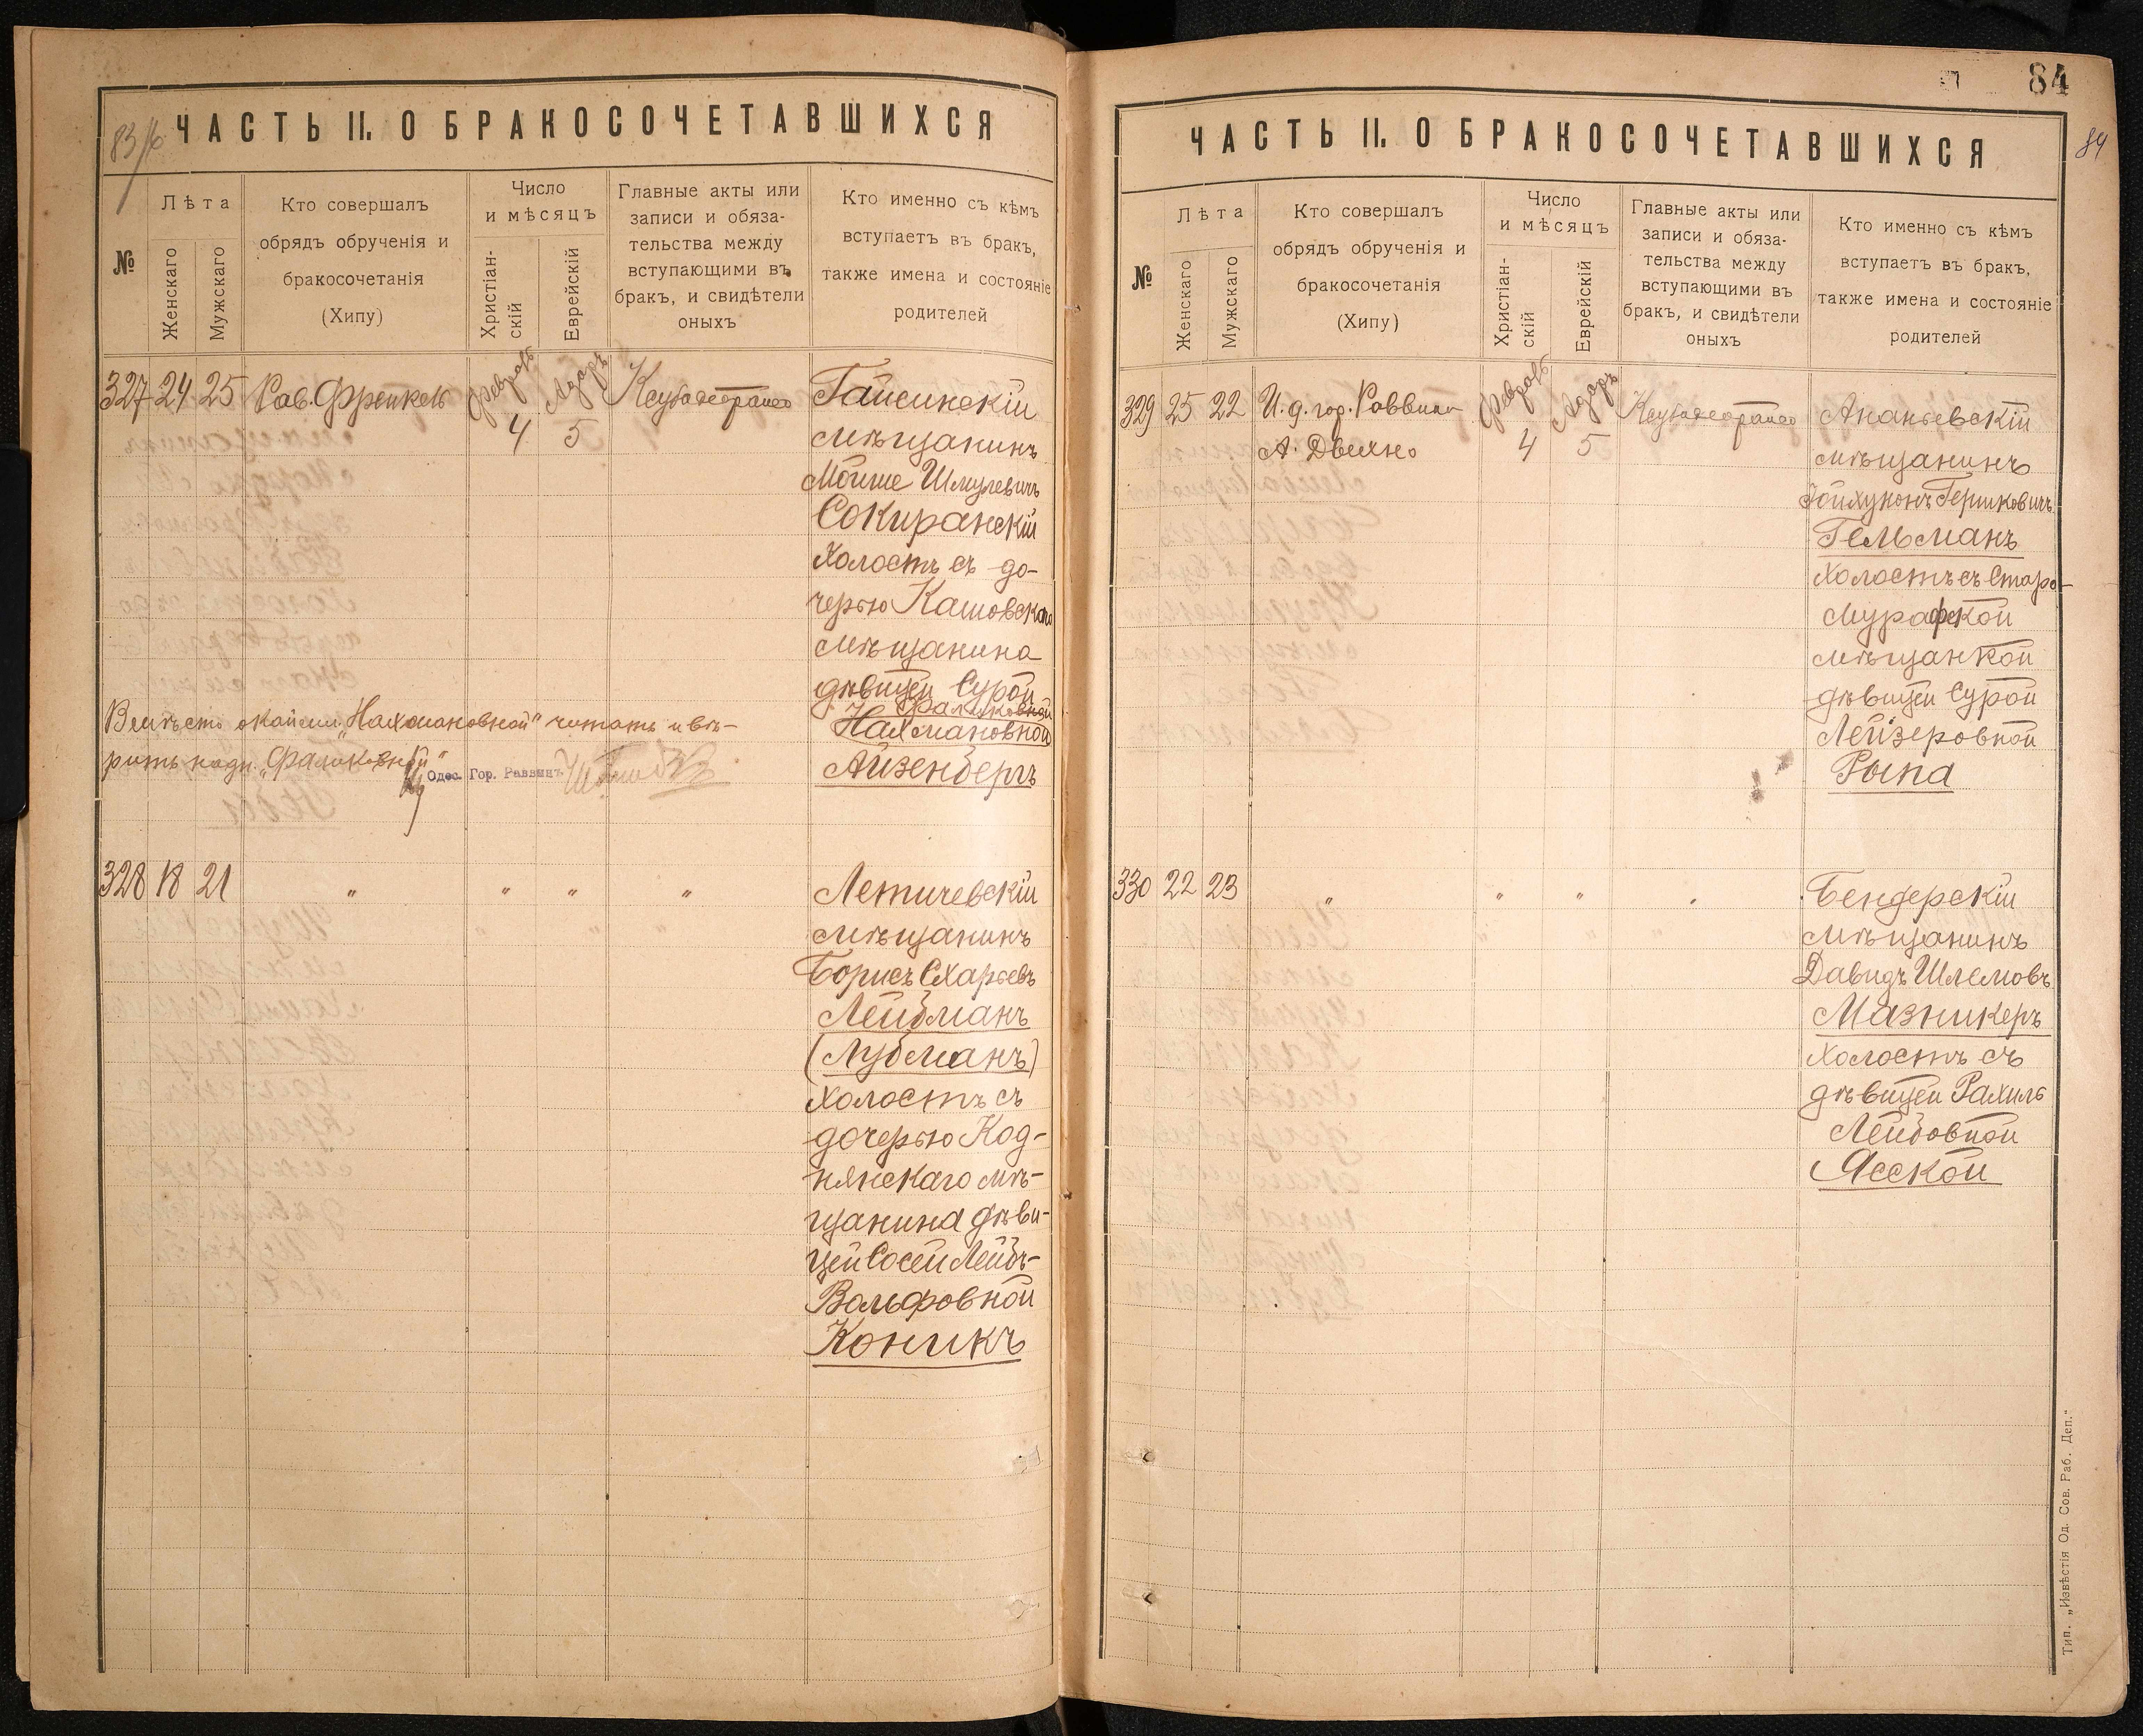 83/б
ЧАСТЬ II. О БРАКОСОЧЕТАВШИХСЯ
№
Лѣта
Женскаго
Мужскаго
Кто совершалъ
обрядъ обрученія и
бракосочетанія
(Хипу)
Число
и мѣсяцъ
Христіан-
скій
Еврейскій
Главные акты или
записи и обяза-
тельства между
вступающими въ
бракъ, и свидѣтели
оныхъ
Кто именно съ кѣмъ
вступаетъ въ бракъ,
также имена и состояніе
родителей
327 24 25 Рав. Френкель Февраль 4 Адаръ 5
Гайсинскій
мѣщанинъ
Мойше Шмулевичъ
Сокиранскій
холостъ съ до-
черью Кашовскаго
мѣщанина
дѣвицей Сурой
Фаликовной
Нахмановной
Айзенбергъ
Вмѣсто окайми. "Нахмановной" читать и вѣ-
рить надп. "Фаликовной"
Одес. Гор. Раввинъ
328 18 21 " " " "
Летичевскій
мѣщанинъ
Борисъ Схарьевъ
Лейбманъ
(Лубманъ)
холостъ съ
дочерью Код-
нянскаго мѣ-
щанина дѣви-
цей Сосей Лейбъ-
Вольфовной
Коникъ
84
84
ЧАСТЬ II. О БРАКОСОЧЕТАВШИХСЯ
№
Лѣта
Женскаго
Мужскаго
Кто совершалъ
обрядъ обрученія и
бракосочетанія
(Хипу)
Число
и мѣсяцъ
Христіан-
скій
Еврейскій
Главные акты или
записи и обяза-
тельства между
вступающими въ
бракъ, и свидѣтели
оныхъ
Кто именно съ кѣмъ
вступаетъ въ бракъ,
также имена и состояніе
родителей
329 25 22 И. д. гор. Раввина Февраль 4 Адаръ 5
А.
Ананьевскій
мѣщанинъ
Гершковичъ
Гельманъ
холостъ съ Старо-
Мурафской
мѣщанкой
дѣвицей Сурой
Лейзеровной
Рыпа
330 22 23 " " " "
Бендерскій
мѣщанинъ
Давидъ Шлемовъ
Мазникеръ
холостъ съ
дѣвицей Рахиль
Лейбовной
Ясской
Тип. „Извѣстія Од. Сов. Раб. Деп."